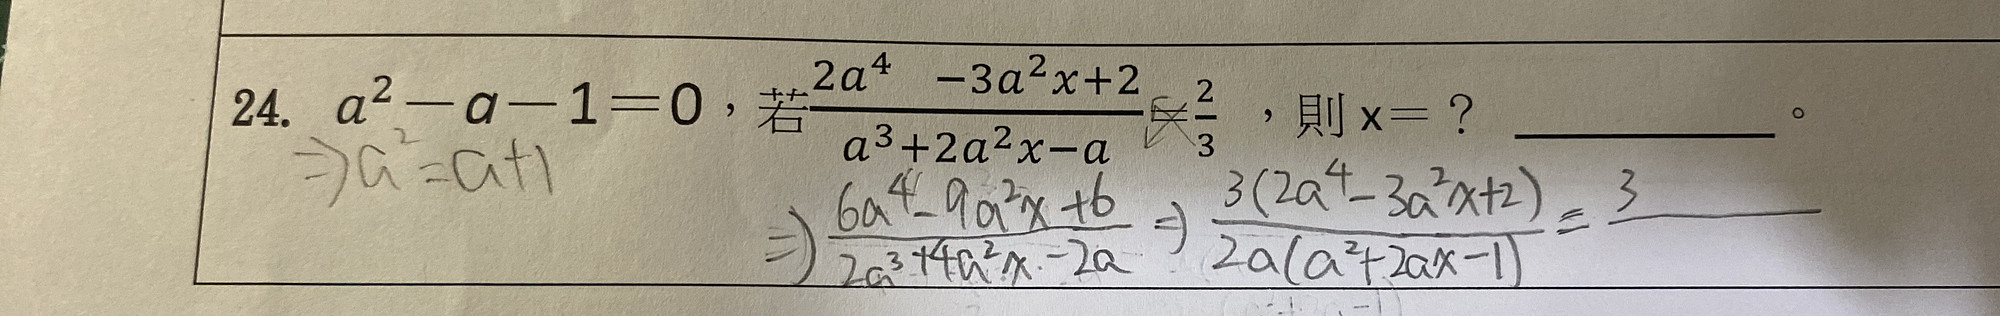 24. a² − a − 1 = 0，若 (2a⁴ −3a²x+2)/(a³+2a²x−a) = 2/3，則 x = ? ________。
⇒ a² = a+1
⇒ (6a⁴ − 9a²x + 6)/(2a³ + 4a²x − 2a) ⇒ 3(2a⁴ − 3a²x + 2)/2a(a² + 2ax − 1) = 3